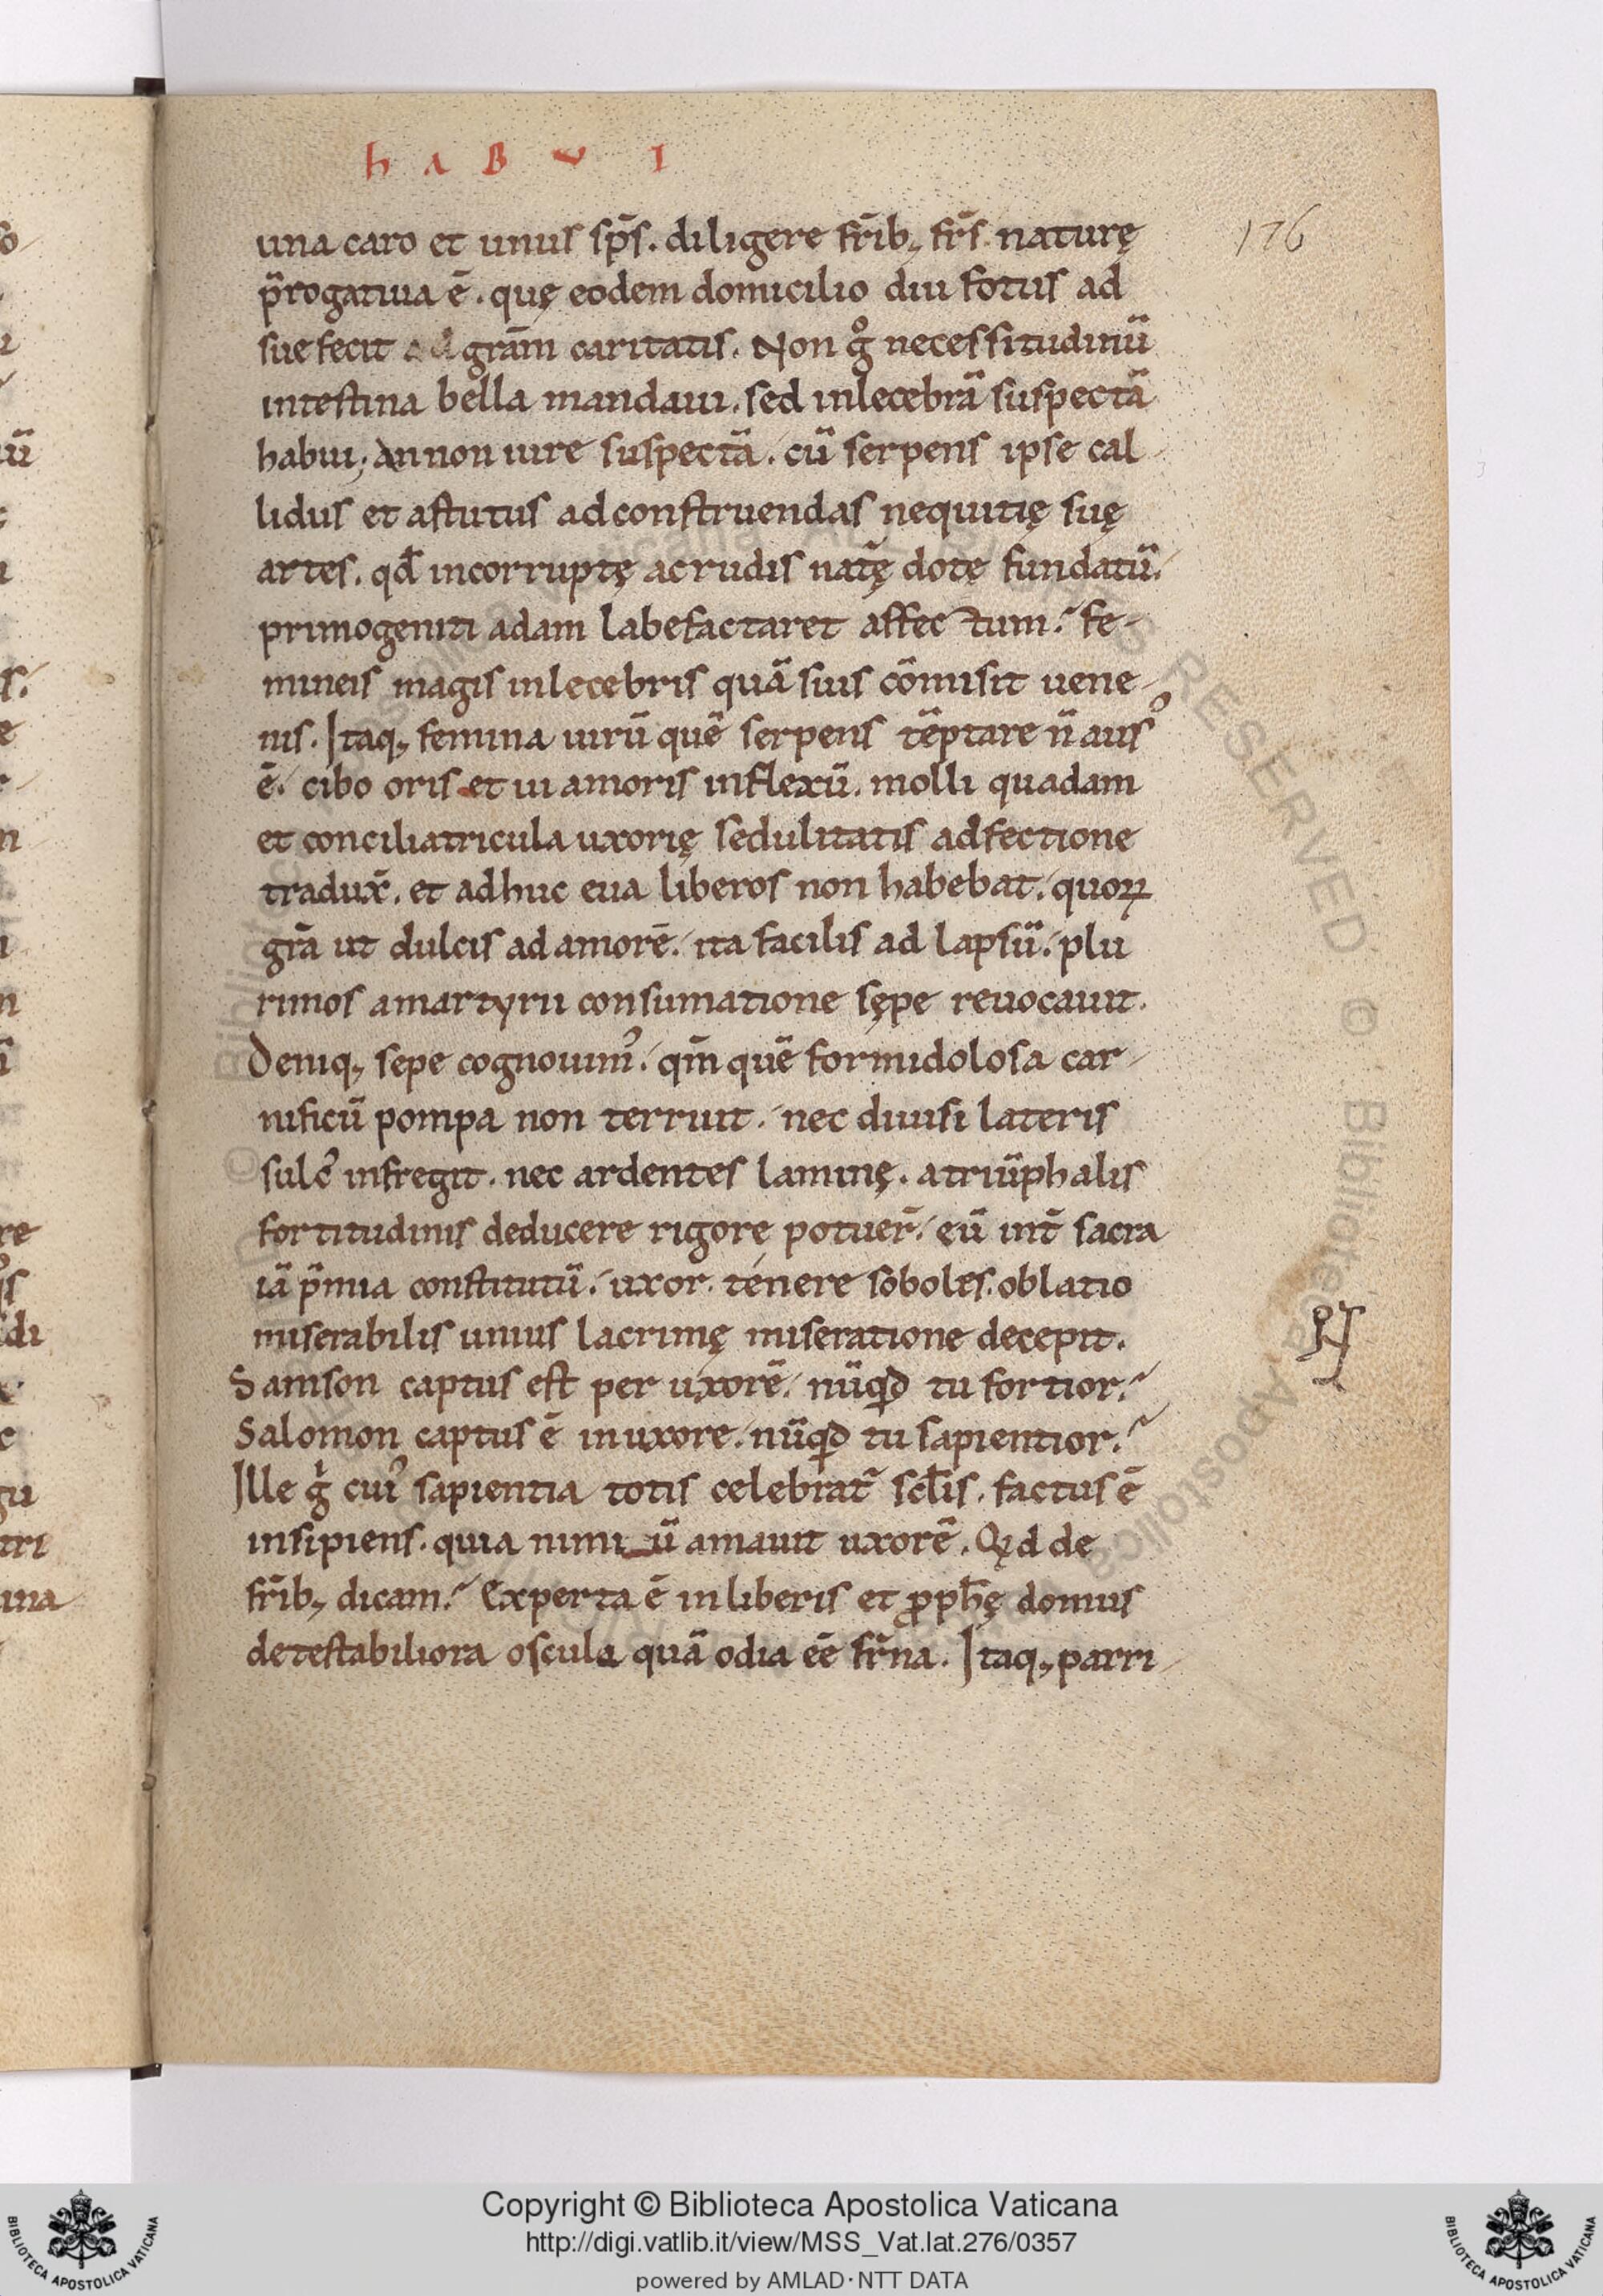 h A B V I
176
una caro et unus sp̄s. diligere fr̄ib; fr̄s. naturę
p̄rogatiua ē. quę eodem domicilio diu fotus ad
sue fecit ad grām caritatis. Non gͦ necessitudinū
intestina bella mandaui. sed inlecebrā suspectā
habui; An non iure suspectā. cū serpens ipse cal
lidus et astutus ad construendas nequitię suę
artes. qd̄ incorruptę ac rudis nat̄ę dotę fundatū.
primogeniti adam labefactaret affectum. fe-
mineis magis inlecebris quā suis cōmisit uene-
nis. Itaq; femina uirū quē serpens tēptare n̄ aus᾽
ē. cibo oris et ui amoris inflexū. molli quadam
et conciliatricula uxorię sedulitatis adfectione
tradux̄. et adhuc eua liberos non habebat. quoꝝ
grā ut dulcis ad amorē. ita facilis ad lapsū. plu
rimos a martyrii consumatione sępe reuocauit.
Deniq; sepe cognouim᾽. qm̄ quē formidolosa car-
nificū pompa non terruit. nec diuisi lateris
sulc᾽ infregit. nec ardentes laminę. a triūphalis
fortitudinis deducere rigore potuer̄. eū int̄ sacra
iā p̄mia constitutū. uxor. tenere soboles. oblatio
miserabilis unius lacrimę miseratione decepit.
Samson captus est per uxorē. nūqd tu fortior.
Salomon captus ē in uxore. nūqd tu sapientior.
Ille g̍ cui᾽ sapientia totis celebrat̄ scl̄is. factus ē
insipiens. quia nimiū amauit uxorē. Qd de
fr̄ib; dicam. Experta ē in liberis et ꝓph̄ę domus
detestabiliora oscula quā odia eē fr̄na. Itaq; parri-
Copyright © Biblioteca Apostolica Vaticana
http://digi.vatlib.it/view/MSS_Vat.lat.276/0357
powered by AMLAD·NTT DATA
BIBLIOTECA APOSTOLICA VATICANA
BIBLIOTECA APOSTOLICA VATICANA